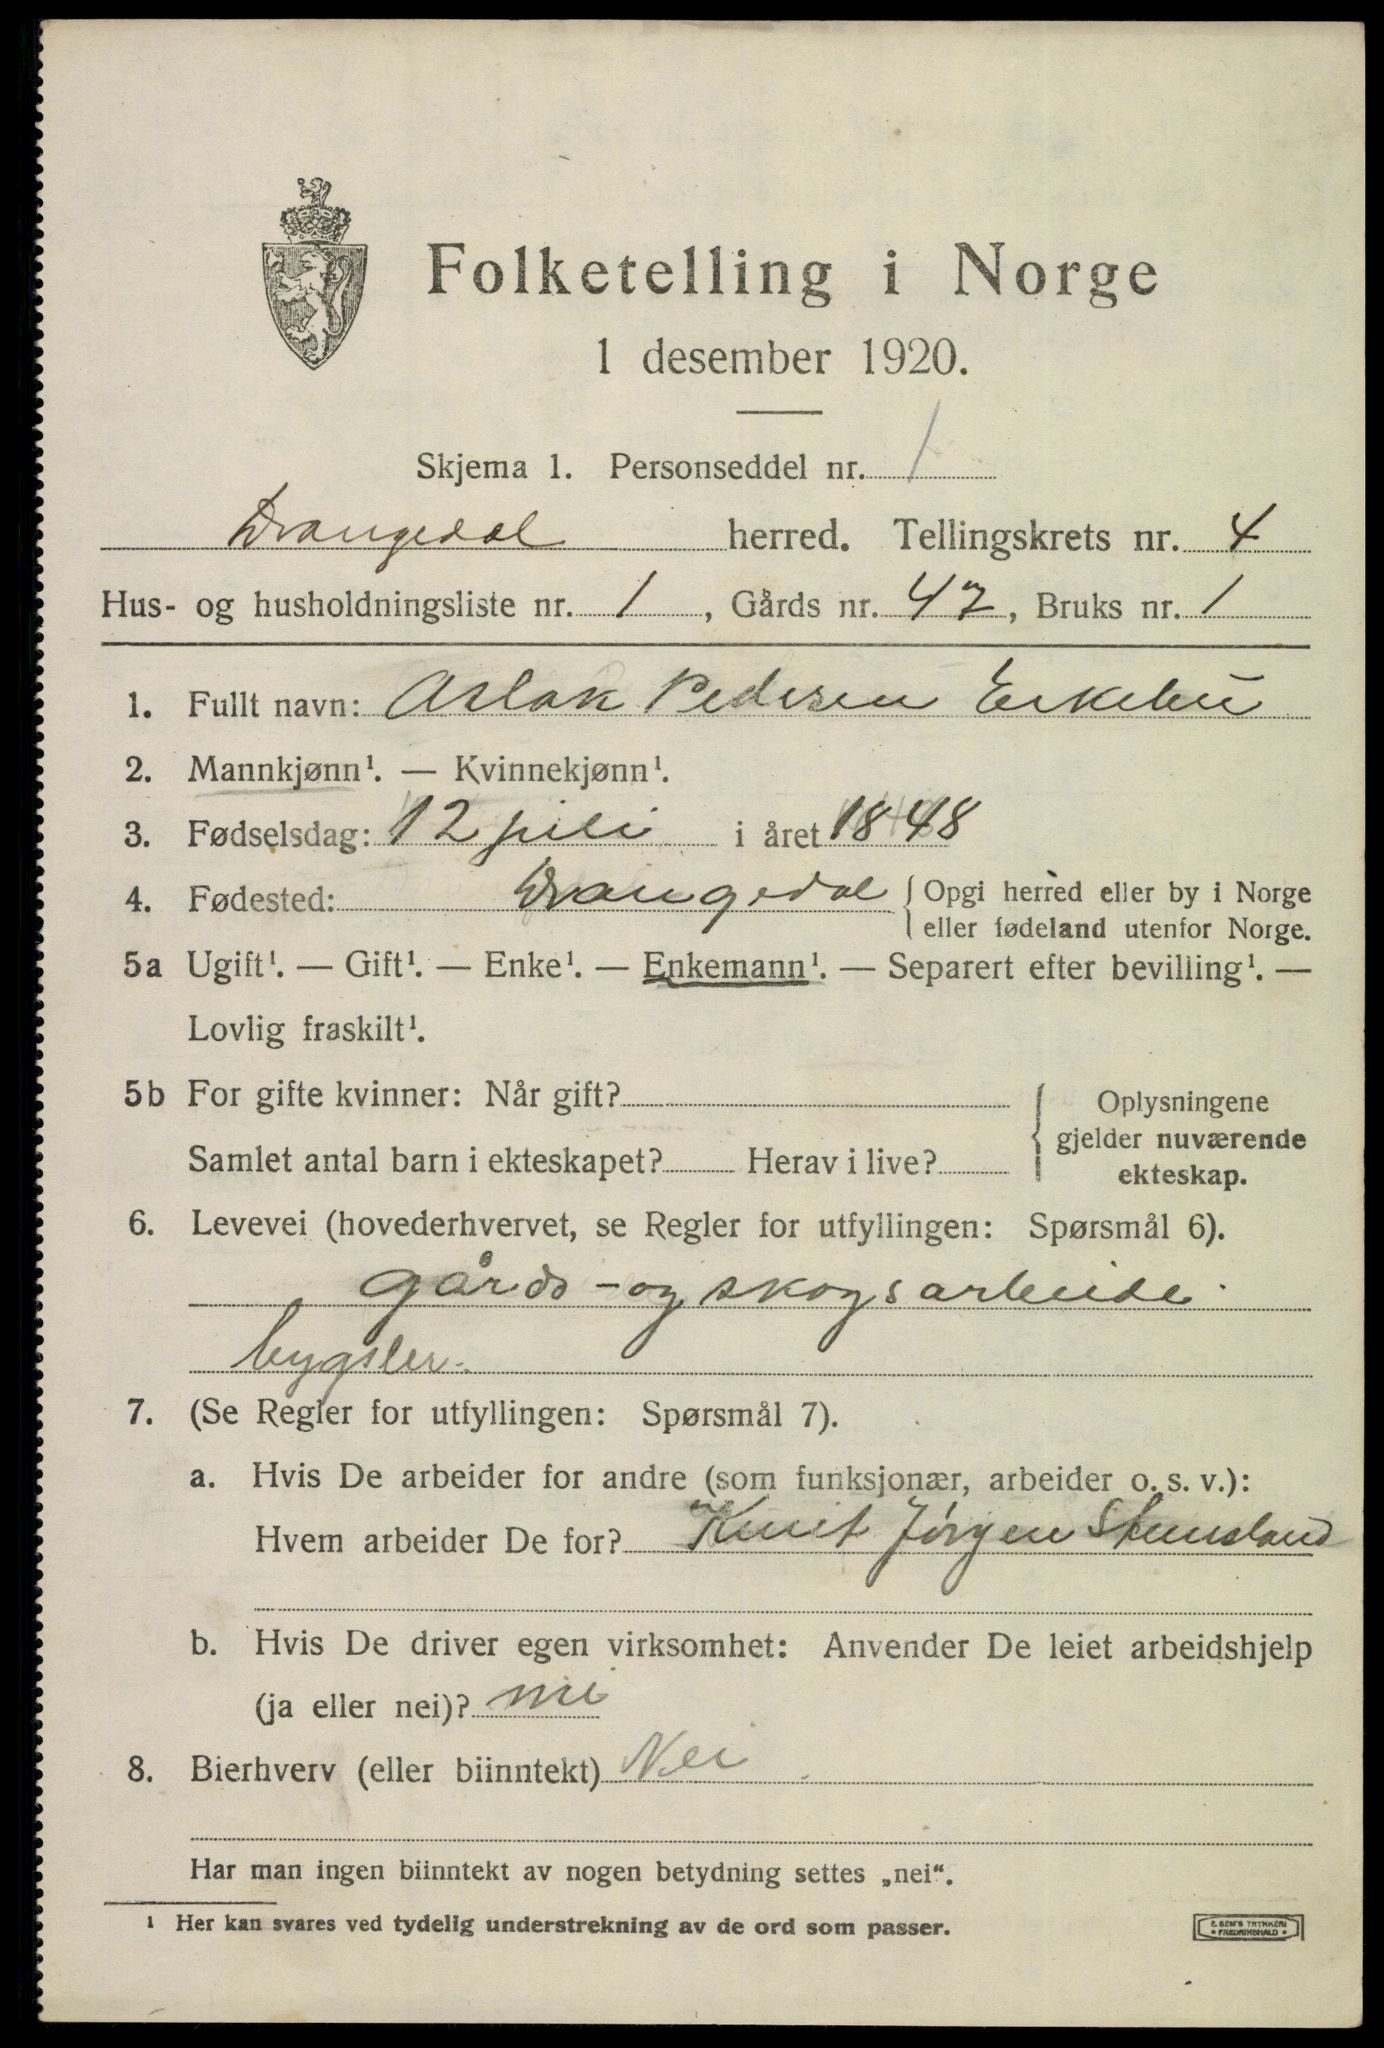 Folketelling i Norge
1 desember 1920.
Skjema 1. Personseddel nr. 1
Drangedal herred. Tellingskrets nr. 4
Hus- og husholdningsliste nr. 1, Gårds nr. 42, Bruks nr. 1
1. Fullt navn: Aslak Pedersen Eikebu
2. Mannkjønn¹. — Kvinnekjønn¹.
3. Fødselsdag: 12 juli i året 1848
4. Fødested: Drangedal { Opgi herred eller by i Norge
eller fødeland utenfor Norge.
5a Ugift¹. — Gift¹. — Enke¹. — Enkemann¹. — Separert efter bevilling¹. —
Lovlig fraskilt¹.
5b For gifte kvinner: Når gift?
Samlet antal barn i ekteskapet? Herav i live?
{ Oplysningene
gjelder nuværende
ekteskap.
6. Levevei (hovederhvervet, se Regler for utfyllingen: Spørsmål 6).
gårds-og skogsarbeide.
bygsler.
7. (Se Regler for utfyllingen: Spørsmål 7).
a. Hvis De arbeider for andre (som funksjonær, arbeider o. s. v.):
Hvem arbeider De for? Knut Jørgen Stensland
b. Hvis De driver egen virksomhet: Anvender De leiet arbeidshjelp
(ja eller nei)? nei
8. Bierhverv (eller biinntekt) Nei.
Har man ingen biinntekt av nogen betydning settes „nei“.
¹ Her kan svares ved tydelig understrekning av de ord som passer.
E. SEM'S TRYKKERI
• FREDRIKSHALD •